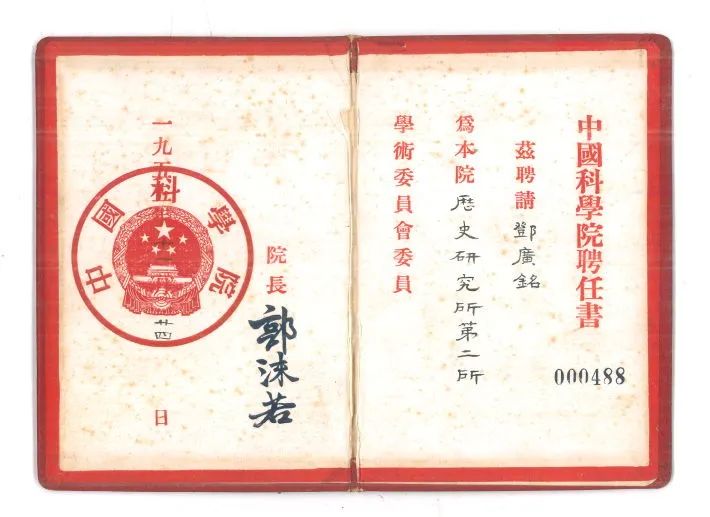 中國科學院聘任書
茲聘請鄧廣銘
爲本院歷史研究所第二所
學術委員會委員
000488
院長 郭沫若
一九五
廿四
日
中國科學院